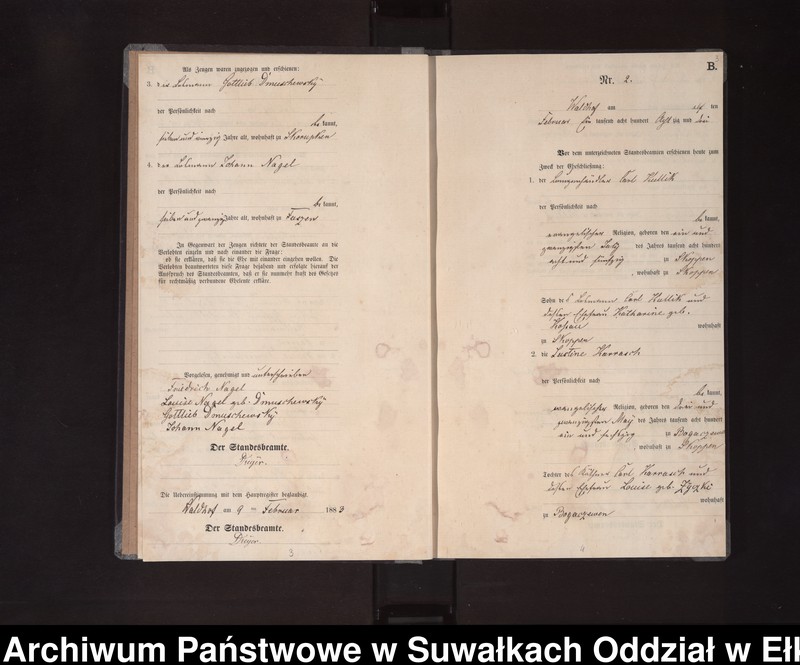 Als Zeugen waren zugezogen und erschienen:
3. der Losmann Gottlieb Dmuschewsky
der Persönlichkeit nach
bekannt,
sieben und zwanzig Jahre alt, wohnhaft zu Skorupken
4. der Losmann Johann Nagel
der Persönlichkeit nach
bekannt,
sieben und zwanzig Jahre alt, wohnhaft zu Faszen
In Gegenwart der Zeugen richtete der Standesbeamte an die
Verlobten einzeln und nach einander die Frage:
ob sie erklären, daß sie die Ehe mit einander eingehen wollen. Die
Verlobten beantworteten diese Frage bejahend und erfolgte hierauf der
Ausspruch des Standesbeamten, daß er sie nunmehr kraft des Gesetzes
für rechtmäßig verbundene Eheleute erkläre.
Vorgelesen, genehmigt und unterschrieben
Friedrich Nagel
Louise Nagel geb. Dmuschewsky
Gottlieb Dmuschewsky
Johann Nagel
Der Standesbeamte.
Die Uebereinstimmung mit dem Hauptregister beglaubigt.
Waldhof am 9 ten Februar 1883
Der Standesbeamte.
3
B.
Nr. 2.
Waldhof am elf ten
Februar Ein tausend acht hundert Acht zig und drei
Vor dem unterzeichneten Standesbeamten erschienen heute zum
Zweck der Eheschließung:
1. der Lumpenhändler Carl Kullik
der Persönlichkeit nach
bekannt,
evangelischer Religion, geboren den ein und
zwanzigsten July des Jahres tausend acht hundert
acht und fünfzig zu Skoppen
, wohnhaft zu Skoppen
Sohn des Losmann Carl Kullik und
dessen Ehefrau Katharine geb.
wohnhaft
zu Skoppen
2. die Justine Karrasch
der Persönlichkeit nach
bekannt,
evangelischer Religion, geboren den drei und
zwanzigsten May des Jahres tausend acht hundert
ein und sechszig zu Bogaczewen
, wohnhaft zu Skoppen
Tochter des Käthner Carl Karrasch und
dessen Ehefrau Louise geb.
wohnhaft
zu Bogaczewen
4
Archiwum Państwowe w Suwałkach Oddział w Ełk